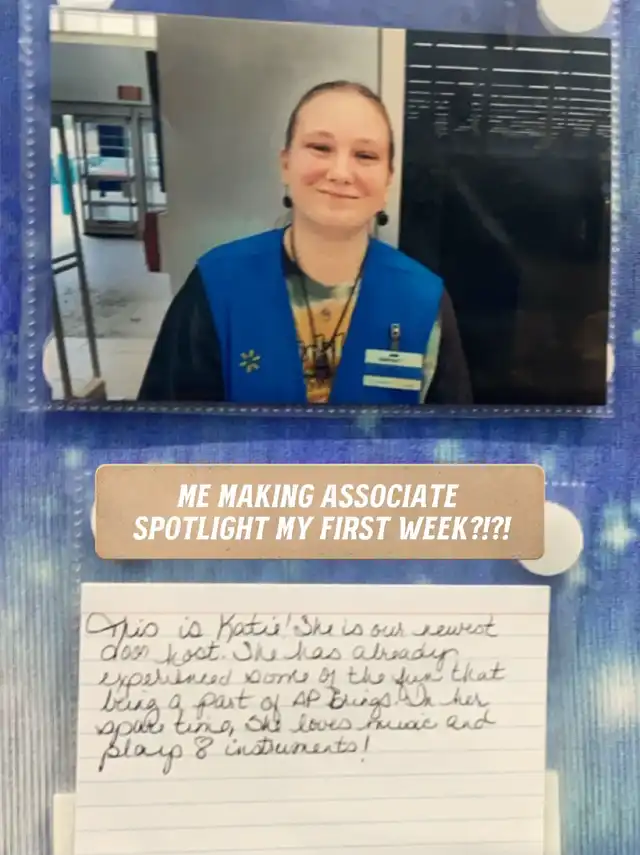 ME MAKING ASSOCIATE
SPOTLIGHT MY FIRST WEEK?!?!
This is Katie! She is our newest
door host. She has already
experienced some of the fun that
being a part of AP brings. In her
spare time, she loves music and
plays 8 instruments!